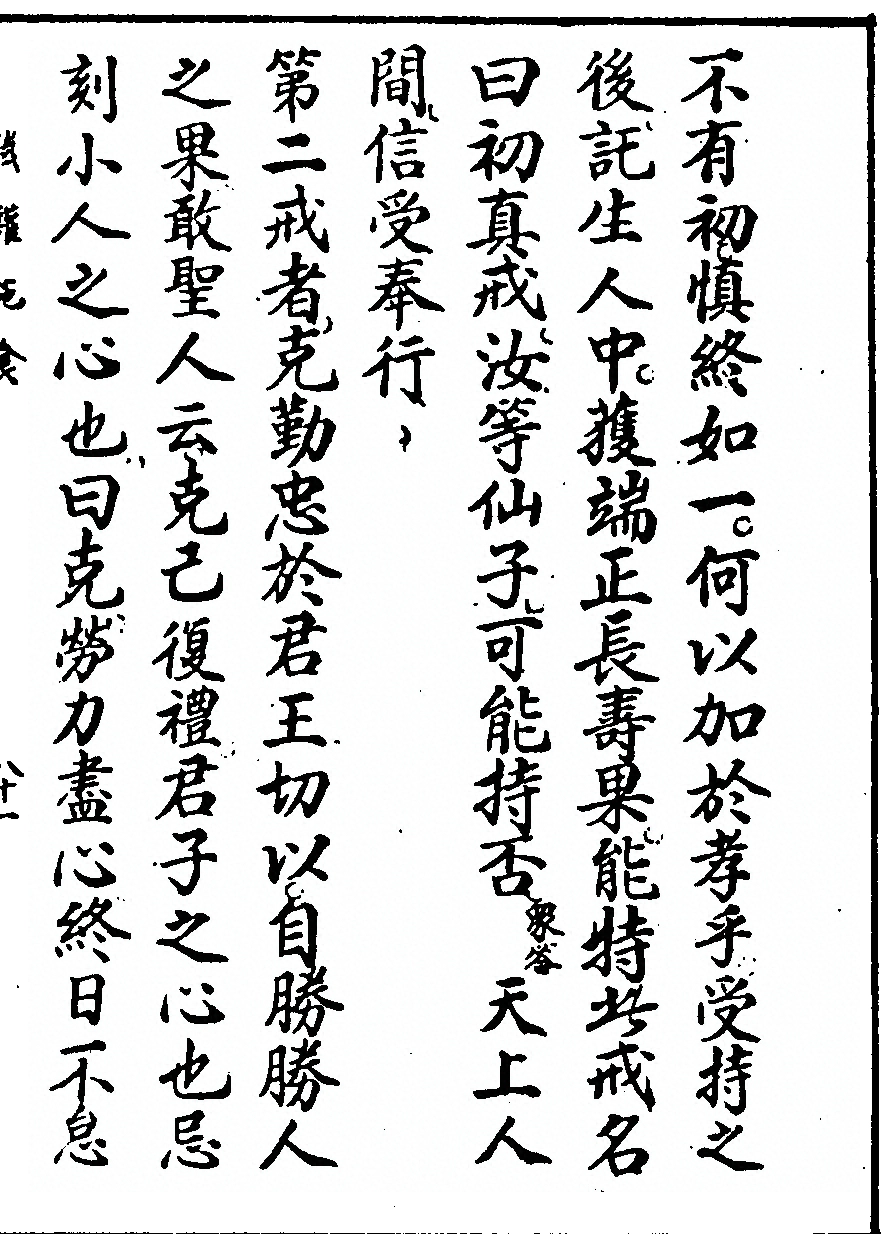 不有初慎終如一何以加於孝乎受持之
後託生人中獲端正長壽果能持此戒名
曰初真戒汝等仙子可能持否眾答天上人
間信受奉行
第二戒者克勤忠於君王切以自勝勝人
之果敢聖人云克己復禮君子之心也忌
刻小人之心也曰克勞力盡心終日不息
八十一